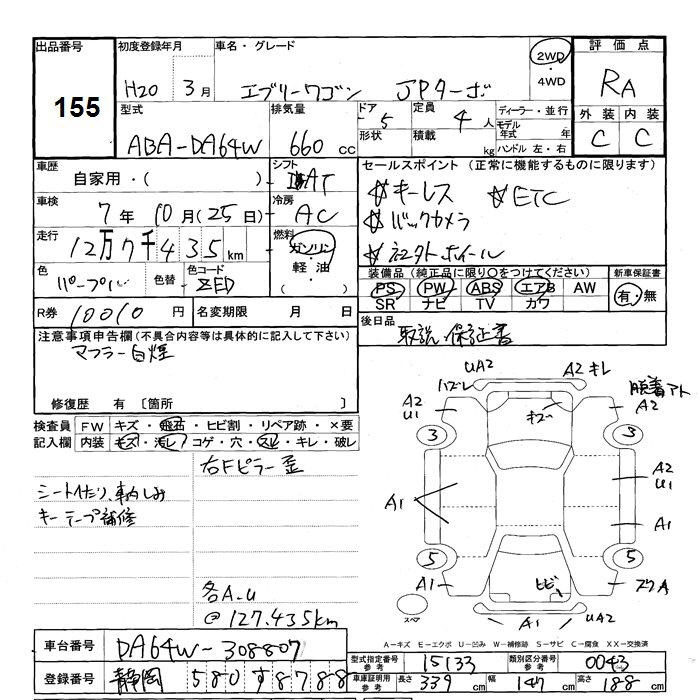 出品番号 初度登録年月 車名・グレード 評価点
155
H20 3月 エブリーワゴン JPターボ 2WD・4WD RA
型式 排気量 ドア 定員 ディーラー・並行 外装 内装
ABA-DA64W 660cc 5 4人 モデル年式 年 C C
形状 積載 kg ハンドル 左・右
車歴 シフト セールスポイント (正常に機能するものに限ります)
自家用・( ) AT
☆キーレス ☆ETC
車検 冷房
7年 10月(25日) AC ☆バックカメラ
走行 燃料
12万7千435km ガソリン・軽油 ( )
☆社外ホイール
色 色替 色コード 装備品(純正品に限り○をつけてください) 新車保証書
パープル ZED PS PW ABS エアB AW 有・無
SR ナビ TV カワ
R券 10010円 名変期限 月 日 後日品
取説・保証書
注意事項申告欄(不具合内容等は具体的に記入して下さい)
マフラー白煙
修復歴 有 [箇所 ]
検査員記入欄 FW キズ・飛石・ヒビ割・リペア跡・×要
内装 キズ・汚レ・コゲ・穴・スレ・キレ・破レ
右Fピラー歪
キーテープ補修
各A.U
@127.435km
UA2 ハズレ A2 キレ
A2 U1 キズ A2
3 3
A2 U1
A1 A1
5 5
A1 ヒビ スペア
A1 UA2
A-キズ E-エクボ U-凹み W-補修跡 S-サビ C-腐食 XX-交換済
車台番号 DA64W-308807
型式指定番号 参考 15133 類別区分番号 参考 0043
登録番号 静岡 580 す 8788
車庫証明用 参考 長さ 339cm 幅 147cm 高さ 188cm